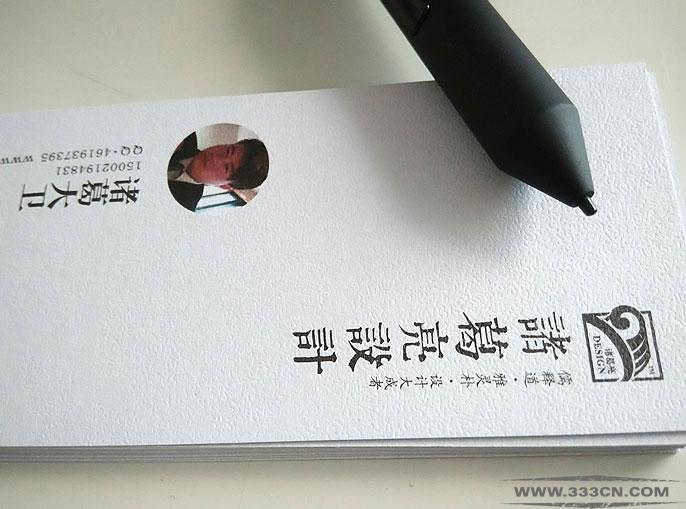 諸葛亮設計
儒释道·雅灵朴·设计大成者
諸葛亮
DESIGN
诸葛大卫
15002194831
QQ·461937395 www
WWW.333CN.COM